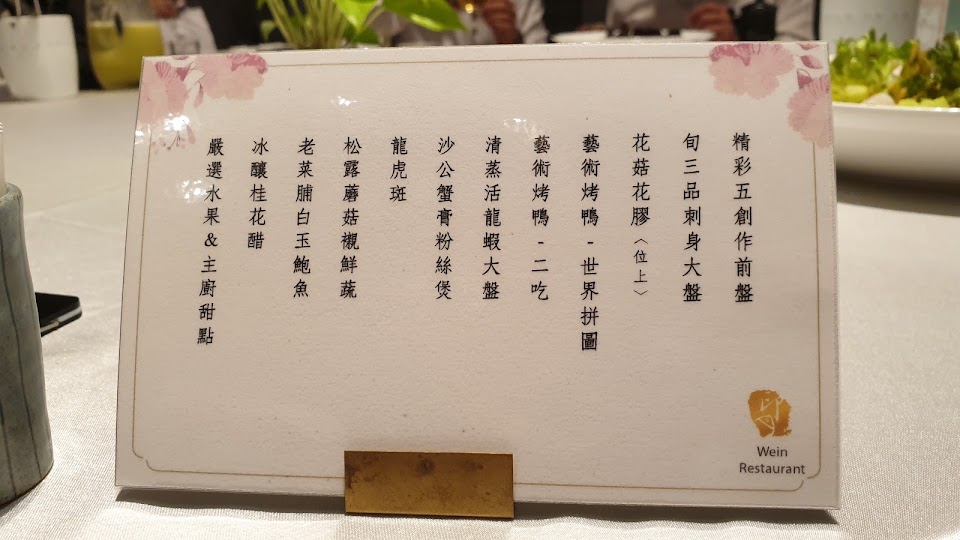 精彩五創作前盤
旬三品刺身大盤
花菇花膠〈位上〉
藝術烤鴨-世界拼圖
藝術烤鴨-二吃
清蒸活龍蝦大盤
沙公蟹膏粉絲煲
龍虎斑
松露蘑菇襯鮮蔬
老菜脯白玉鮑魚
冰釀桂花醋
嚴選水果&主廚甜點
Wein
Restaurant